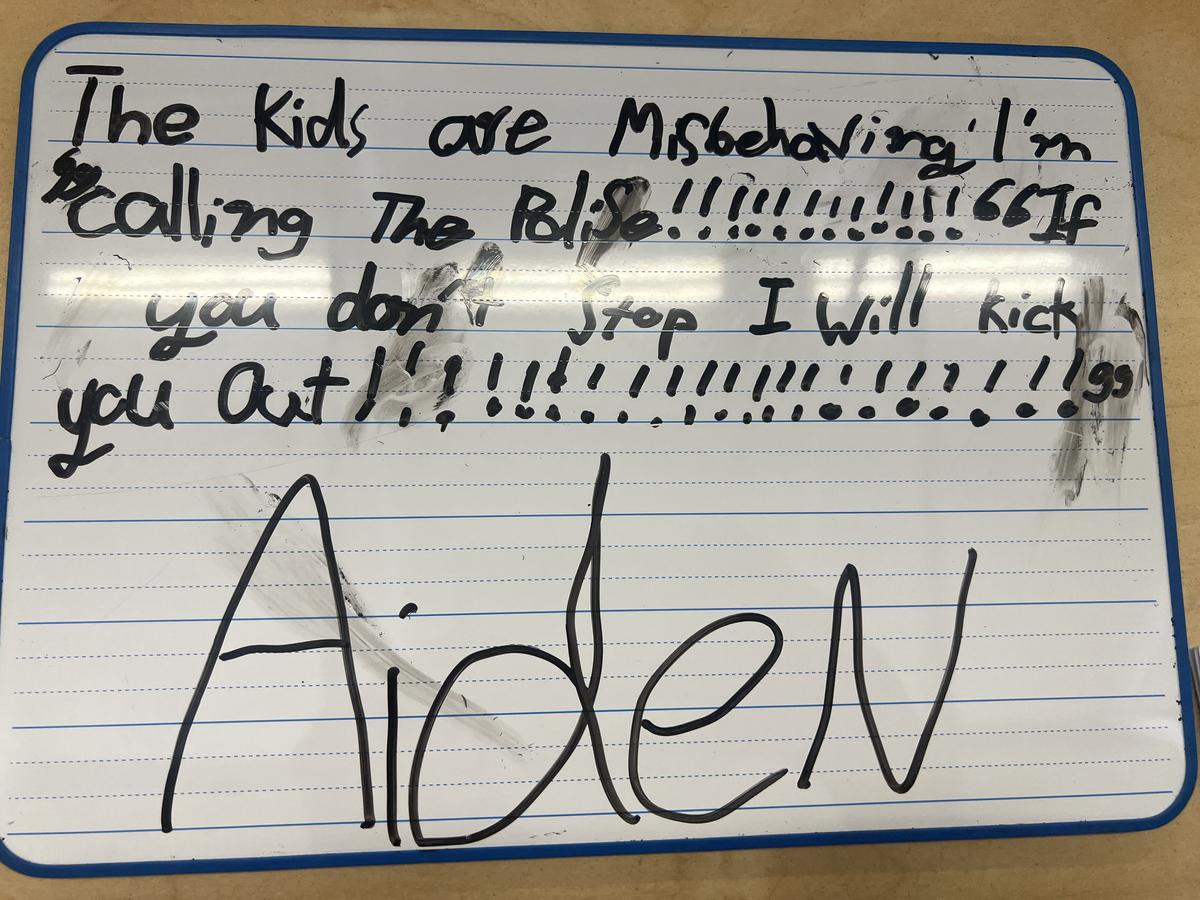 The Kids are Misbehaving I'm
calling The Polise!!!!!!!!!!!!! “If
you don't Stop I Will kick
you Out!!!!!!!!!!!!!!!!!!!!!”
AideN